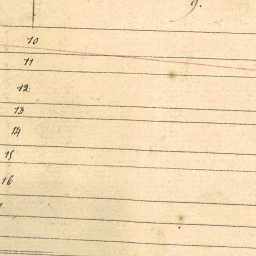 9.
10
11
12.
13
14
15
16